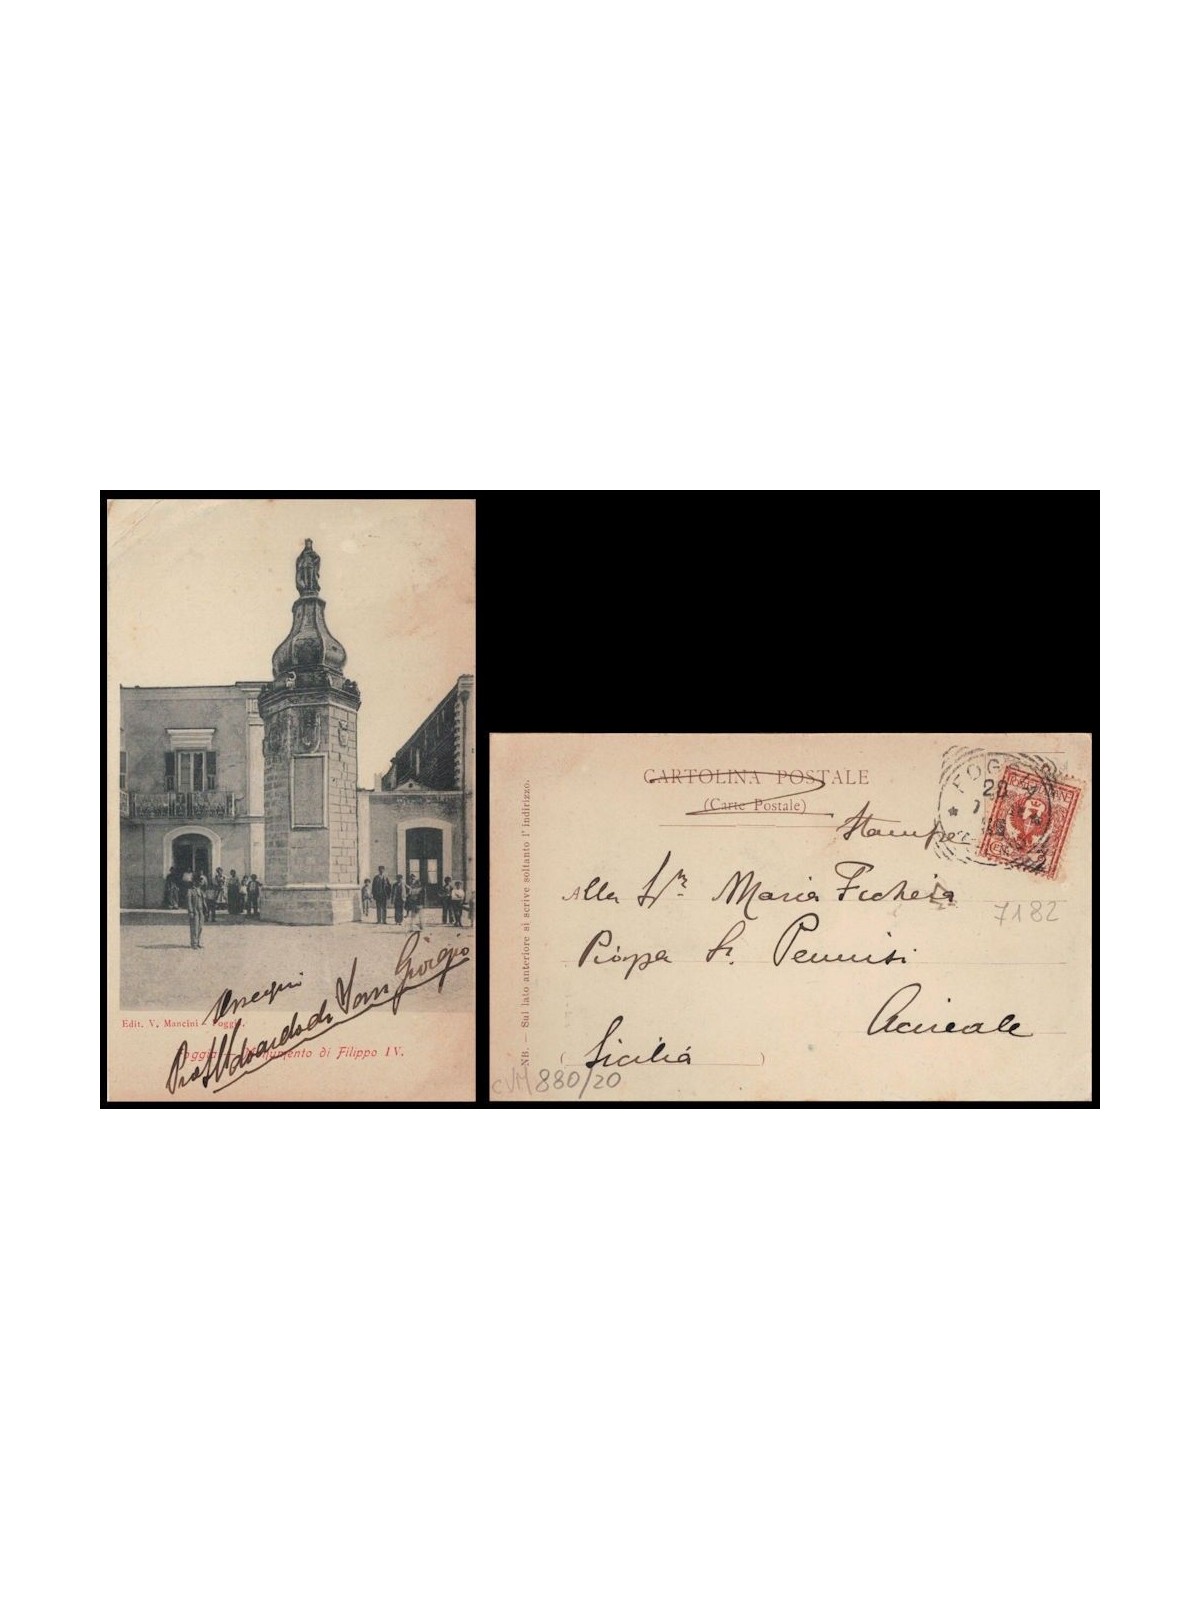 Ossequi
Prof. Edoardo di San Giorgio
Edit. V. Mancini - Foggia.
Foggia - Monumento di Filippo IV.
CARTOLINA POSTALE
(Carte Postale)
Stampe
FOG
20
2
Alla
Maria Fichera
7182
Pennisi
Acireale
Sicilia
CVM 880/20
NB. — Sul lato anteriore si scrive soltanto l'indirizzo.